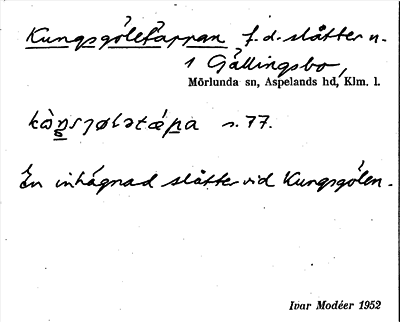 Kungsgöletäppan f.d. slåtter n.
i Gällingsbo,
Mörlunda sn, Aspelands hd, Klm. l.
s. 77.
En inhägnad slåtter vid Kungsgölen.
Ivar Modéer 1952